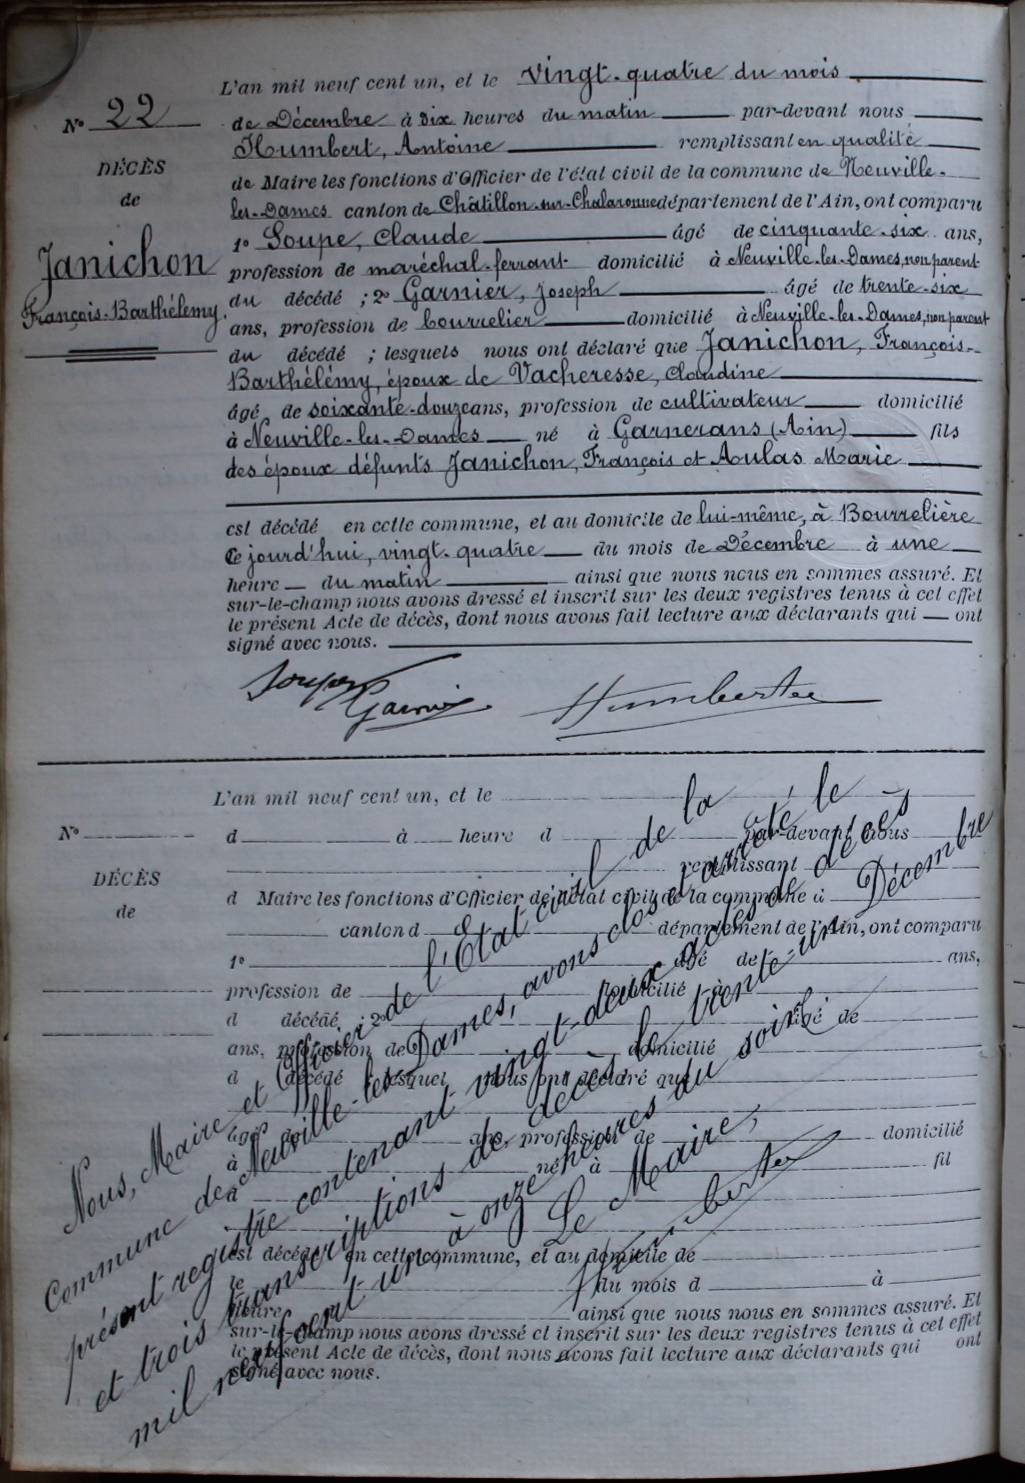 N° 22
DÉCÈS
de
Janichon
François-Barthélemy.
L'an mil neuf cent un, et le vingt-quatre du mois
de Décembre à six heures du matin par-devant nous
Humbert, Antoine remplissant en qualité
de Maire les fonctions d'Officier de l'état civil de la commune de Neuville-
les-Dames canton de Châtillon-sur-Chalaronne département de l'Ain, ont comparu
1° Soupe, Claude âgé de cinquante-six ans,
profession de maréchal-ferrant domicilié à Neuville-les-Dames, non parent
du décédé ; 2° Garnier, Joseph âgé de trente-six
ans, profession de bourrelier domicilié à Neuville-les-Dames, non parent
du décédé ; lesquels nous ont déclaré que Janichon, François-
Barthélémy, époux de Vacheresse, Claudine
âgé de soixante-douze ans, profession de cultivateur domicilié
à Neuville-les-Dames né à Garnerans (Ain) fils
des époux défunts Janichon, François et Aulas Marie
est décédé en cette commune, et au domicile de lui-même, à Bourrelière
Ce jourd'hui, vingt-quatre du mois de Décembre à une
heure du matin ainsi que nous nous en sommes assuré. Et
sur-le-champ nous avons dressé et inscrit sur les deux registres tenus à cet effet
le présent Acte de décès, dont nous avons fait lecture aux déclarants qui ont
signé avec nous.
Soupe
Garnier
Humbert
N°
DÉCÈS
de
L'an mil neuf cent un, et le
d à heure d par-devant nous
remplissant
d Maire les fonctions d'Officier de l'état civil de la commune d
canton d département de l'Ain, ont comparu
1° âgé de ans,
profession de domicilié à
d décédé ; 2° âgé de
ans, profession de domicilié
d décédé ; lesquel nous ont déclaré que
âgé de ans, profession de domicilié
à né à fil
d
est décédé en cette commune, et au domicile de
le du mois d à
heure ainsi que nous nous en sommes assuré. Et
sur-le-champ nous avons dressé et inscrit sur les deux registres tenus à cet effet
le présent Acte de décès, dont nous avons fait lecture aux déclarants qui ont
signé avec nous.
Nous, Maire et Officier de l'État civil de la
Commune de Neuville-les-Dames, avons clos et arrêté le
présent registre contenant vingt-deux actes de décès
et trois transcriptions de décès le trente-un Décembre
mil neuf cent un à onze heures du soir.
Le Maire,
Humbert